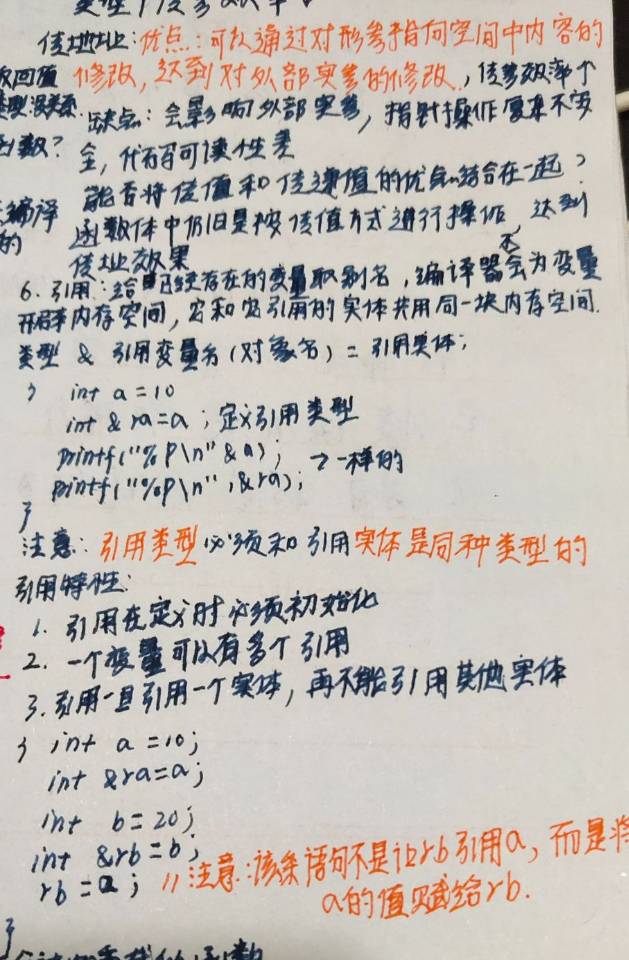 传地址：优点：可以通过对形参指向空间中内容的
返回值 修改，达到对外部实参的修改。，传参效率高
类型没关系 缺点：会影响外部实参，指针操作复杂不安
函数？ 全，代码可读性差
能否将传值和传递值的优点结合在一起？
编译 函数体中仍旧是按传值方式进行操作，达到
的 传址效果
6. 引用：给已经存在的变量取别名，编译器不会为变量
开辟内存空间，它和它引用的实体共用同一块内存空间.
类型 & 引用变量名（对象名）= 引用实体；
int a = 10
int & ra = a ; 定义引用类型
printf("%p\n" &a); 一样的
printf("%p\n", &ra);
}
注意：引用类型必须和引用实体是同种类型的
引用特性：
1. 引用在定义时必须初始化
2. 一个变量可以有多个引用
3. 引用一旦引用一个实体，再不能引用其他实体
int a = 10;
int &ra=a;
int b = 20;
int &rb = b;
rb = a; //注意：该条语句不是让rb引用a，而是将
a的值赋给rb.
}